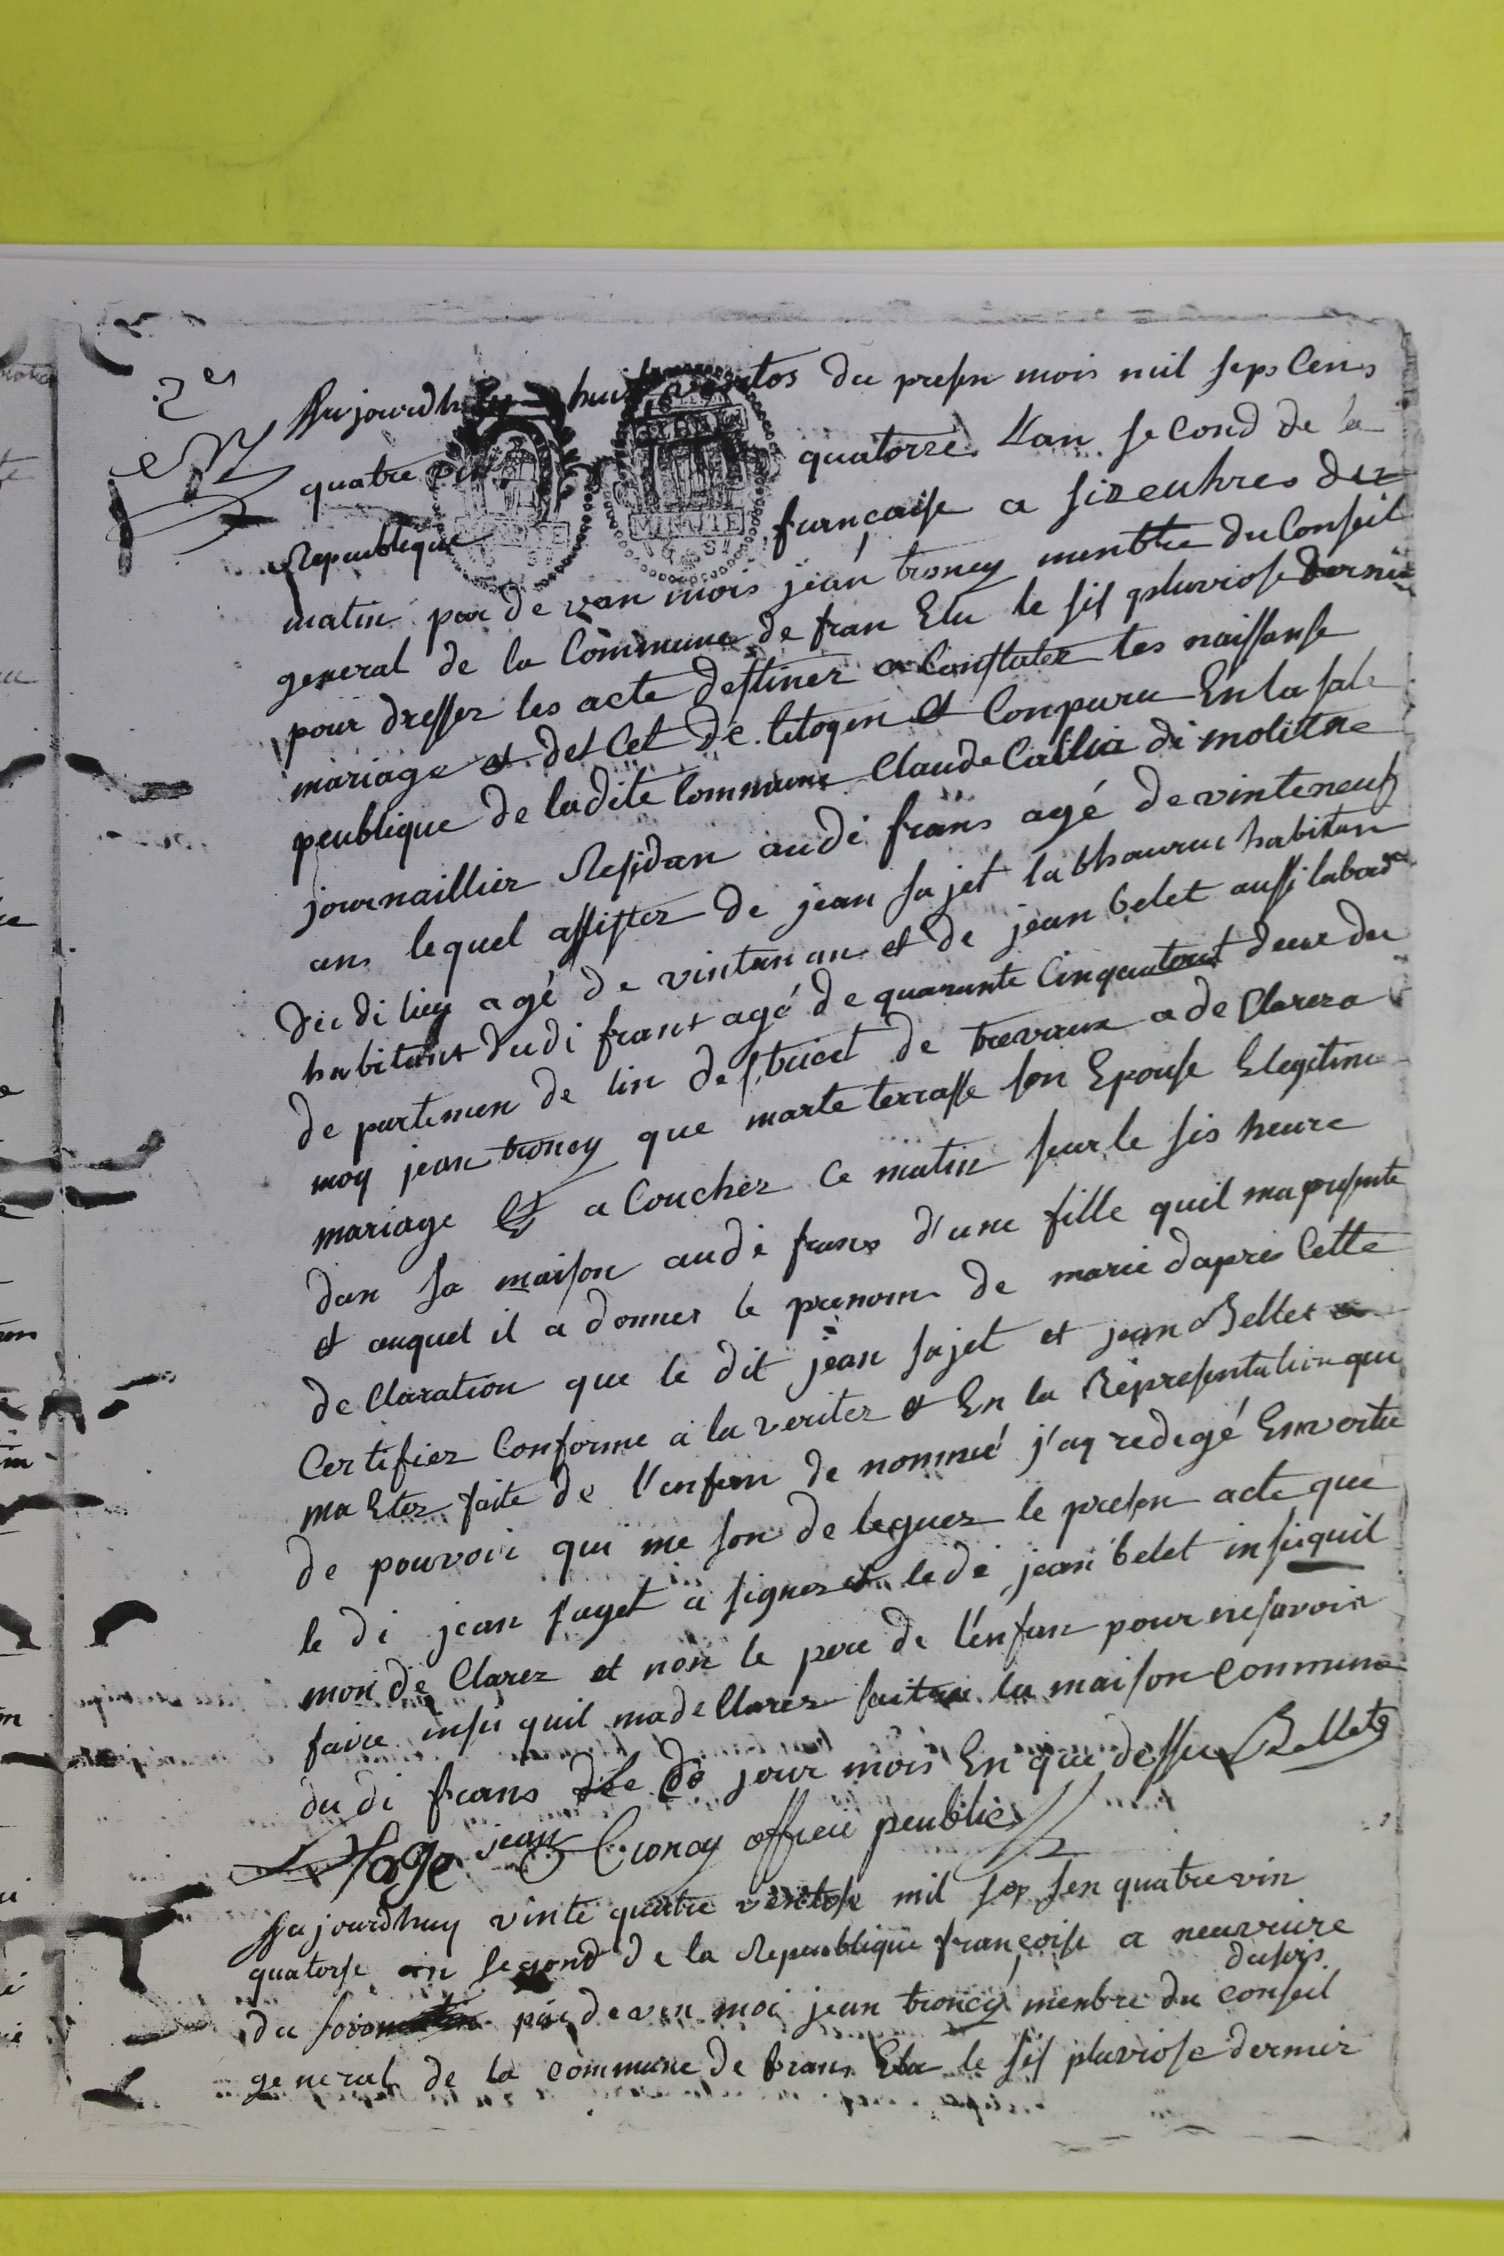 2es
Aujourdhuy huit ventos du presen mois mil seps Cens
quatre vin quatorze L'an second de la
Republique francaise a sizeuhres du
matin par de van mois jean troncy menbtre du Conseil
general de la Commune de fran Elu le sis pluviose dernie
pour dresser les acte destiner a Constater les naissanse
mariage et des Cet de Citogen et Conparu En la sale
peublique de ladite Commune Claude Callia di molitne
journaillier Residan audi frans agé de vinteneuf
ans lequel assister de jean sajet labhoureur habitan
du di lieu agé de vintun an et de jean belet aussi labour
habitant dudi frans agé de quarante Cinq deux du
de partemen de lin destrict de trevoux a de Clarer a
moy jean troncy que marte terrasse son Epouse Elegitime
mariage Et a Coucher Ce matin sur le sis heure
dan sa maison audi frans d'une fille quil ma presente
et auquel il a donner le prenom de marie dapres Cette
de Claration que le dit jean sajet et jean Bellet
Certifier Conforme a la veriter et En la Representation qui
ma Eter faite de l'enfan de nommé j'ay redegé Envertu
de pouvoir qui me son de leguer le presen acte que
le di jean saget a signer et le di jean belet insiquil
mon de Clarer et non le pere de l'enfan pour nesavoir
faire insi quil made Clarer fait a la maison commune
du di frans le jour mois En que dessu Bellet
sage jean troncy officie peublic
Aujourdhuy vinte quatre ventose mil sep sen quatre vin
quatorse an segond de la Republique françoise a neuvriire
du soir
du par deven moi jean troncy menbre du conseil
general de la commune de frans Elu le sis pluviose dernier
MINUTE